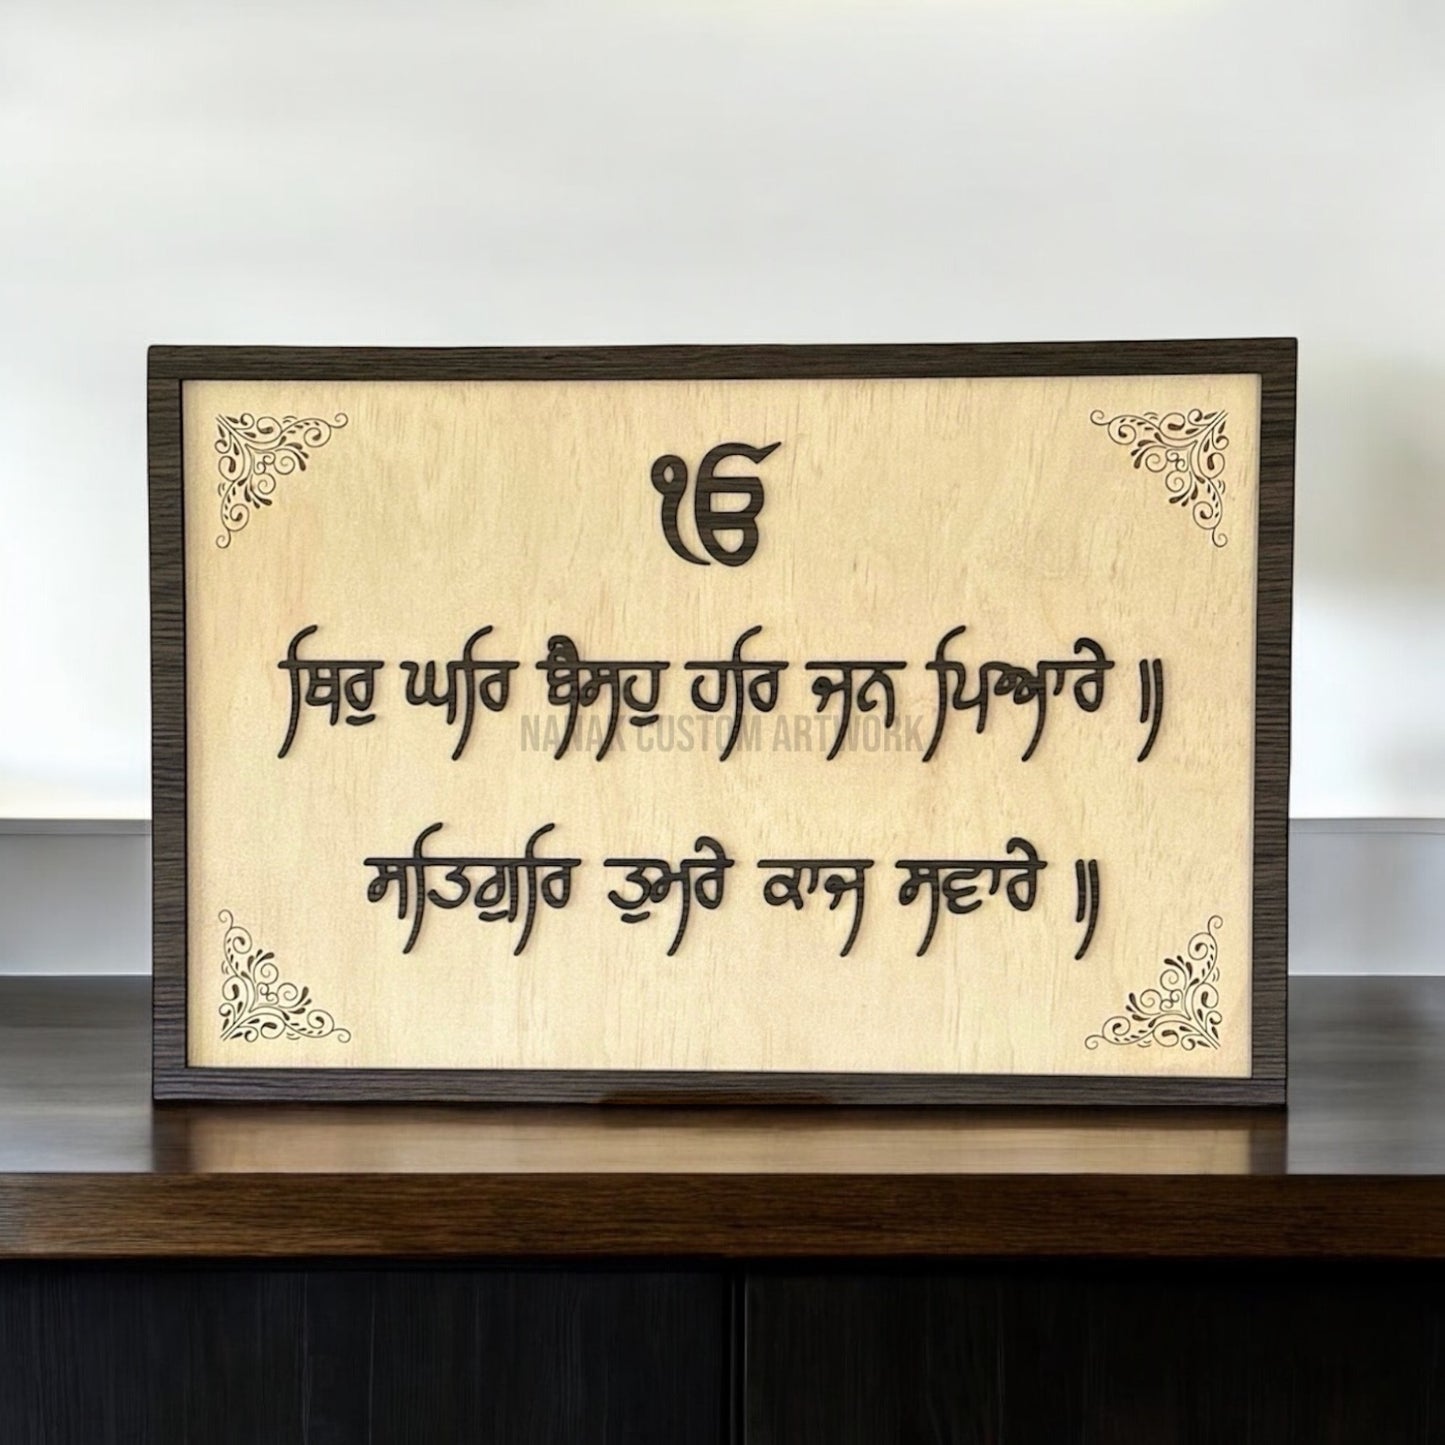 ੴ
ਥਿਰੁ ਘਰਿ ਬੈਸਹੁ ਹਰਿ ਜਨ ਪਿਆਰੇ ॥
NANAK CUSTOM ARTWORK
ਸਤਿਗੁਰਿ ਤੁਮਰੇ ਕਾਜ ਸਵਾਰੇ ॥